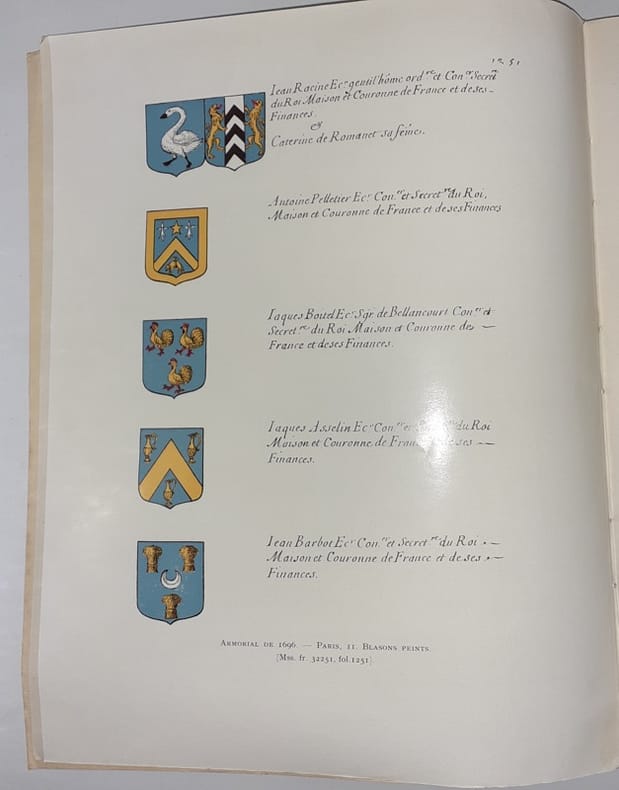 1251
Iean Racine Ecr gentil'hôme ordre et Conr Secret
du Roi Maison et Couronne de France et de ses –
Finances.
&
Caterine de Romanet sa feme.
Antoine Pelletier Ecr Conr et Secretre du Roi,
Maison et Couronne de France et de ses Finances
Iaques Boitel Ecr Sgr de Bellancourt Conr et
Secretre du Roi Maison et Couronne de —
France et de ses Finances.
Iaques Asselin Ecr Conr et du Roi
Maison et Couronne de France et de ses —
Finances.
Iean Barbot Ecr Conr et Secretre du Roi . —
Maison et Couronne de France et de ses . —
Finances.
ARMORIAL DE 1696. — PARIS, II. BLASONS PEINTS.
[Mss. fr. 32251, fol. 1251].